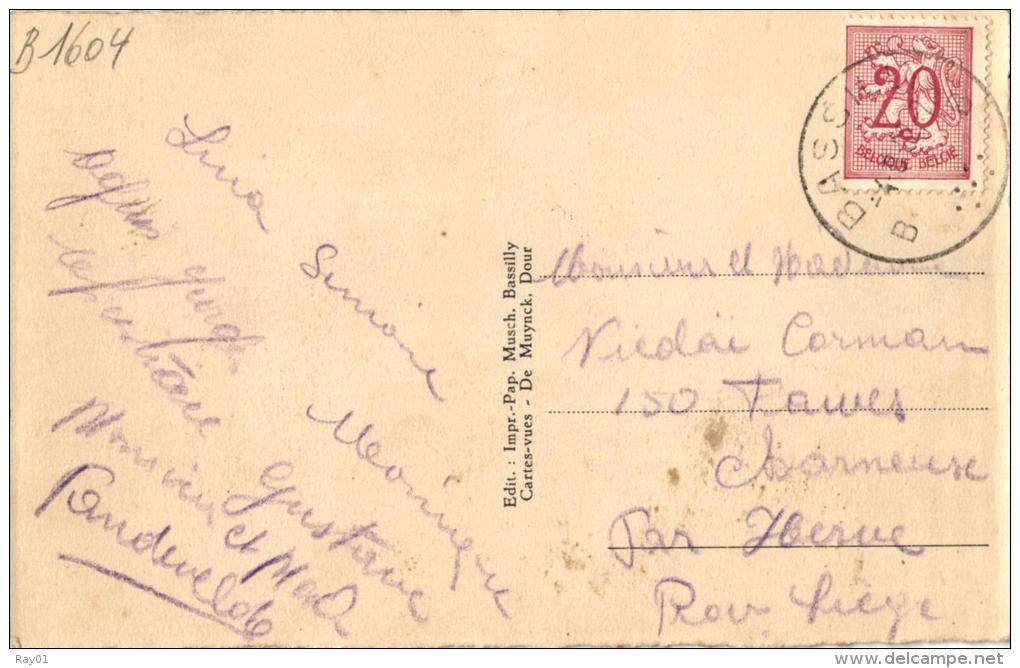 B1604
BASSILLY
B
20
BELGIQUE BELGIË
Lina
Simone
Monique
Georges
Gustave
Monsieur et Mad
Vandevelde
Edit. : Impr.-Pap. Musch, Bassilly
Cartes-vues - De Muynck, Dour
Monsieur et Madame
Nicolaï Corman
150 Fawes
Charneux
Par Herve
Prov Liège
Ray01
delcampe.net